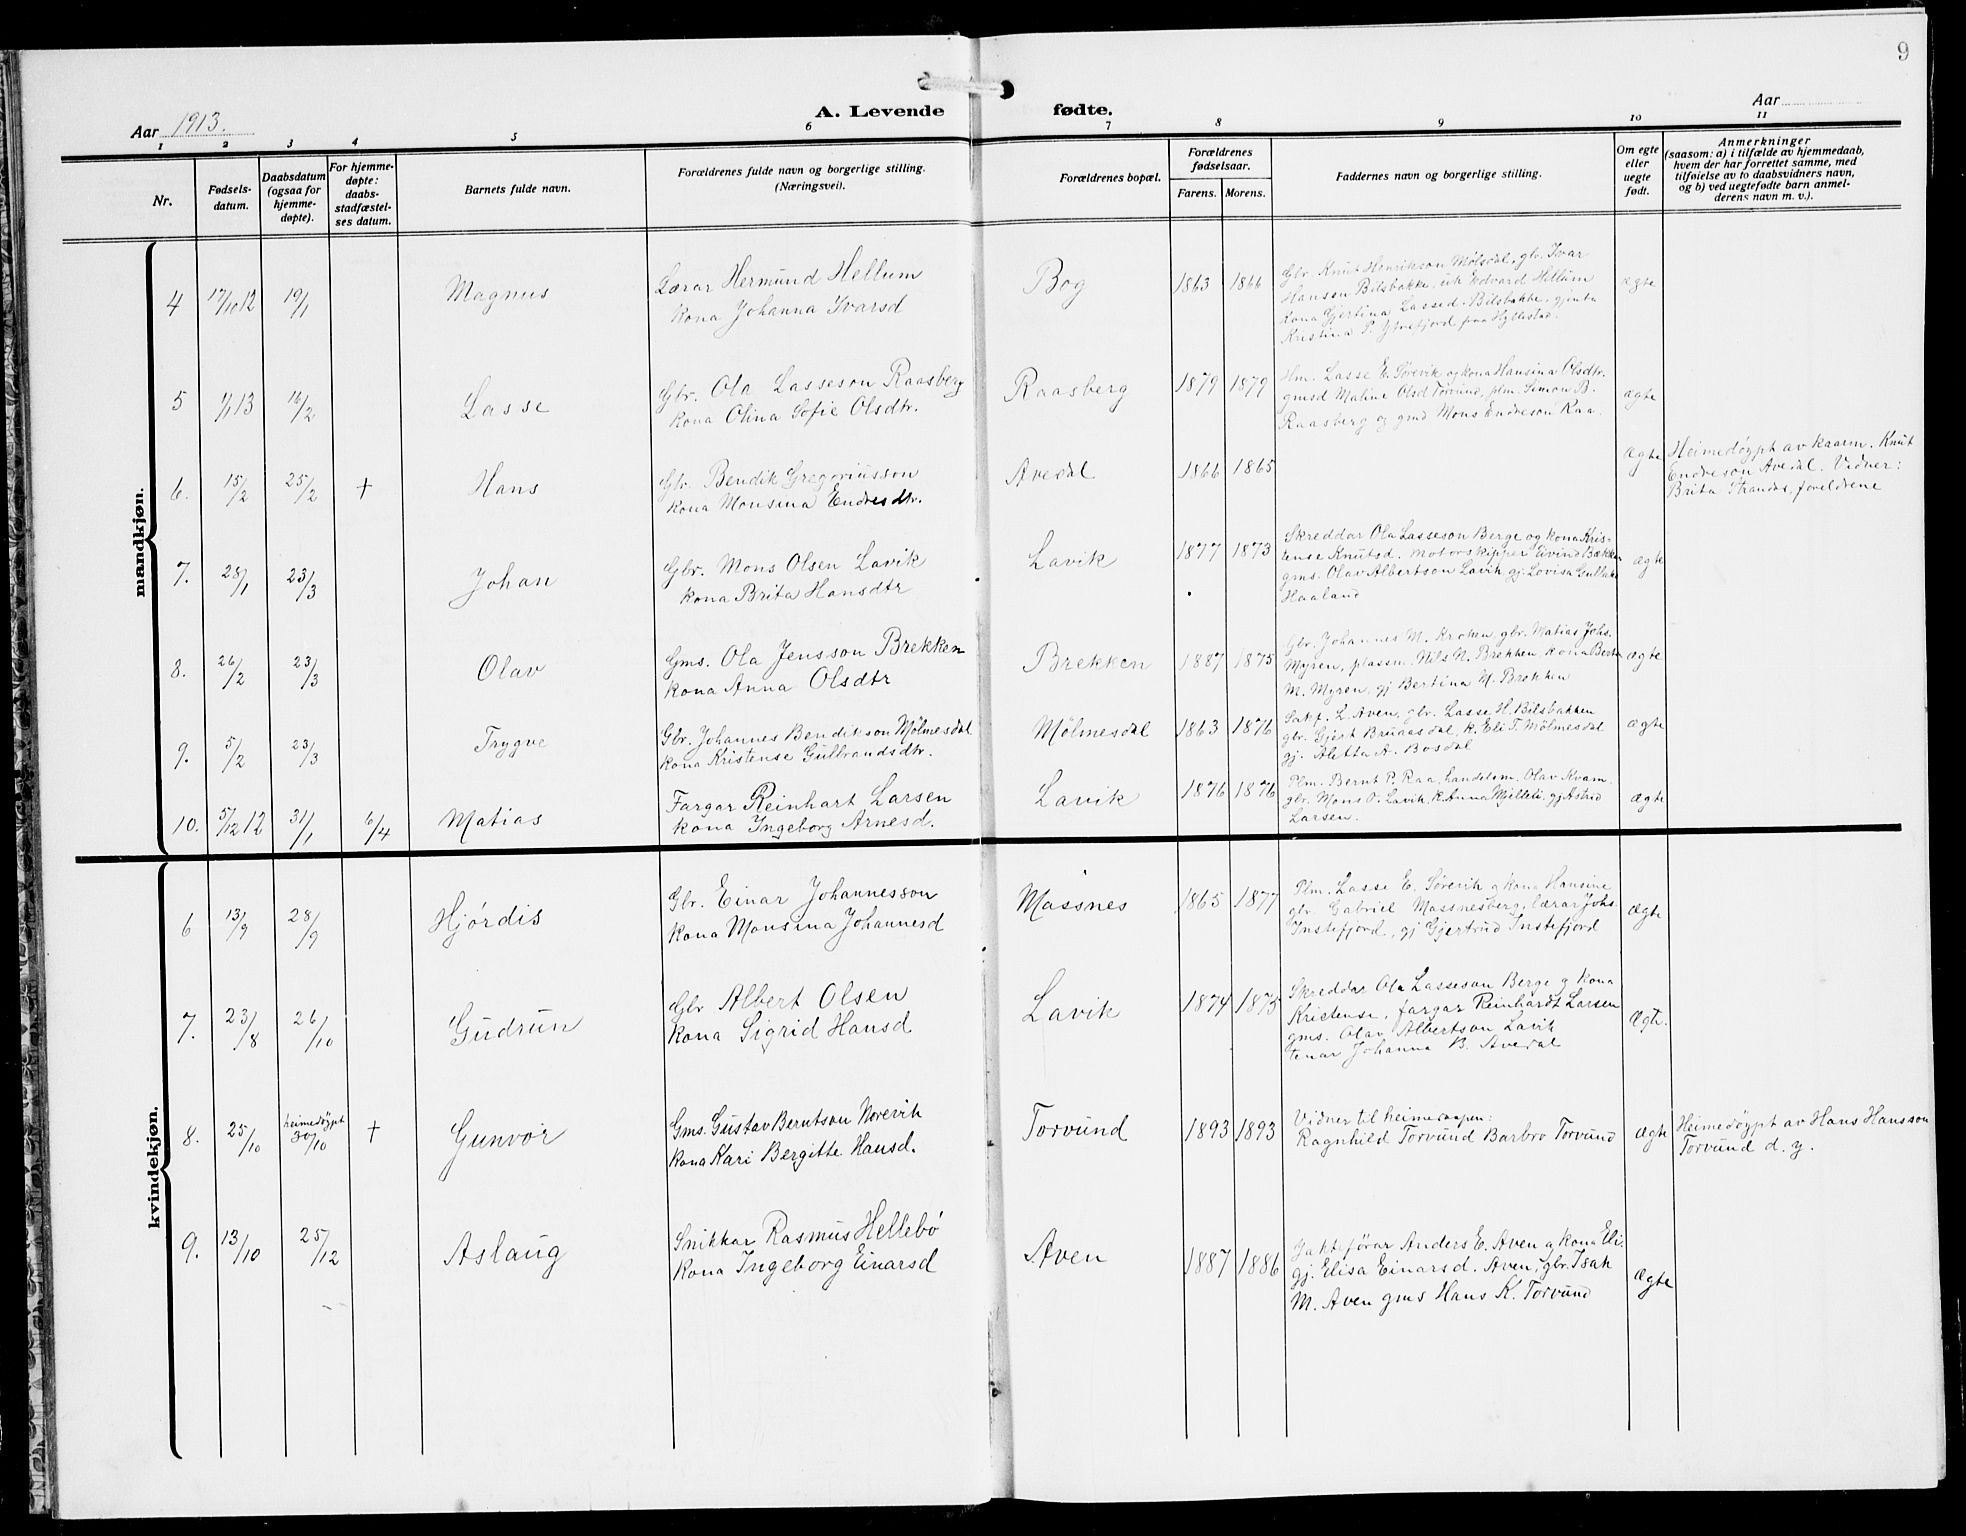 9
Aar 1913.
A. Levende fødte.
Aar
1 2 3 4 5 6 7 8 9 10 11
Nr.
Fødsels-
datum.
Daabsdatum
(ogsaa for
hjemme-
døpte).
For hjemme-
døpte:
daabs-
stadfæstel-
ses datum.
Barnets fulde navn.
Forældrenes fulde navn og borgerlige stilling.
(Næringsvei).
Forældrenes bopæl.
Forældrenes
fødselsaar.
Farens. Morens.
Faddernes navn og borgerlige stilling.
Om egte
eller
uegte
født.
Anmerkninger
(saasom: a) i tilfælde av hjemmedaab,
hvem der har forrettet samme, med
tilføielse av to daabsvidners navn,
og b) ved uegtefødte barn anmel-
derens navn m. v.).
mandkjøn.
4 17/10 12 19/1 Magnus
Lærar Hermund Hellum
kona Johanna Ivarsd
Bog 1863 1866
Glr Knut Henrikson Mølsdal, glr. Ivar
Hansen Bilsbakke, uk Edvard Hellum
kona Gjertina Lassed. Bilsbakke, gjenta
Kristina P. Ytrefjord fraa Hyllestad.
ægte
5 1/1 13 16/2 Lasse
Gbr. Ola Lasseson Raasberg
kona Olina Sofie Olsdtr.
Raasberg 1879 1879
Hm. Lasse E. Sørevik og kona Hansina Olsdtr.
gmsd Maline Olsd Torvund, plm. Simon B.
Raasberg og gmd Mons Endreson Raa.
ægte
6. 15/2 25/2 + Hans
Gbr. Bendik Gregoriusson
kona Monsina Endresdtr.
Avedal 1866 1865
Ægte
Heimedøypt av kaarm. Knut
Endreson Avedal. Vidner:
Brita Strandos, foreldrene
7. 28/1 23/3 Johan
Gbr. Mons Olsen Lavik
kona Brita Hansdtr
Lavik 1877 1873
Skreddar Ola Lasseson Berge og kona Kris-
tense Knutsd. motorskipper Eivind Bækken
gms. Olav Albertson Lavik, gj. Lovisa Gullaks
Haaland
ægte
8. 26/2 23/3 Olav
Gms. Ola Jensson Brekken
kona Anna Olsdtr
Brekken 1887 1875
Gbr. Johannes M. Kroken, gbr. Matias Johs.
Myren, plassm. Nils N. Brekken, kona Berta
M. Myren, gj Bertina N. Brekken
ægte
9. 5/2 23/3 Trygve
Gbr. Johannes Bendikson Mølmesdal
kona Kristense Gulbrandsdtr.
Mølmesdal 1863 1876
Sakf. L. Aven, gbr. Lasse H. Bilsbakken
gbr. Gjert Bruaasdal, k. Eli T. Mölmesdal
gj. Aletta A. Bosdal
ægte
10. 5/12 12 31/1 6/4 Matias
Fargar Reinhart Larsen
kona Ingeborg Arnesd.
Lavik 1876 1876
Plm. Bernt P. Raa, handelsm. Olav Kvam
gbr. Mons O. Lavik, k. Anna Mjelleli, gj Astrid
Larsen.
ægte
kvindekjøn.
6 13/9 28/9 Hjördis
Gbr. Einar Johannesson
kona Monsina Johannesd
Massnes 1865 1877
Plm. Lasse E. Sørevik og kona Hansine
gbr. Gabriel Massnesberg, lærar Johs.
Instefjord, gj Gjertrud Instefjord
Ægte
7. 23/8 26/10 Gudrun
Gbr Albert Olsen
kona Sigrid Hansd
Lavik 1874 1875
Skreddar Ola Lasseson Berge og kona
Kristense, fargar Reinhardt Larsen
gms. Olav Albertson Lavik
tenar Johanna B. Avedal
Ægte.
8. 25/10 heimedøypt 30/10 + Gunvor
Gms. Gustav Berntson Norevik
Kona Kari Bergitte Hansd.
Torvund 1893 1893
Vidner til heimedaapen:
Ragnhild Torvund Barbro Torvund
Ægte
Heimedøypt av Hans Hansson
Torvund d. y.
9. 13/10 25/12 Aslaug
Snikkar Rasmus Hellebö
kona Ingeborg Einarsd
Aven 1887 1886
Jakteförar Anders E. Aven og kona Eli.
gj. Elisa Einarsd. Aven, gbr. Isak
M. Aven gms Hans K. Torvund
Ægte